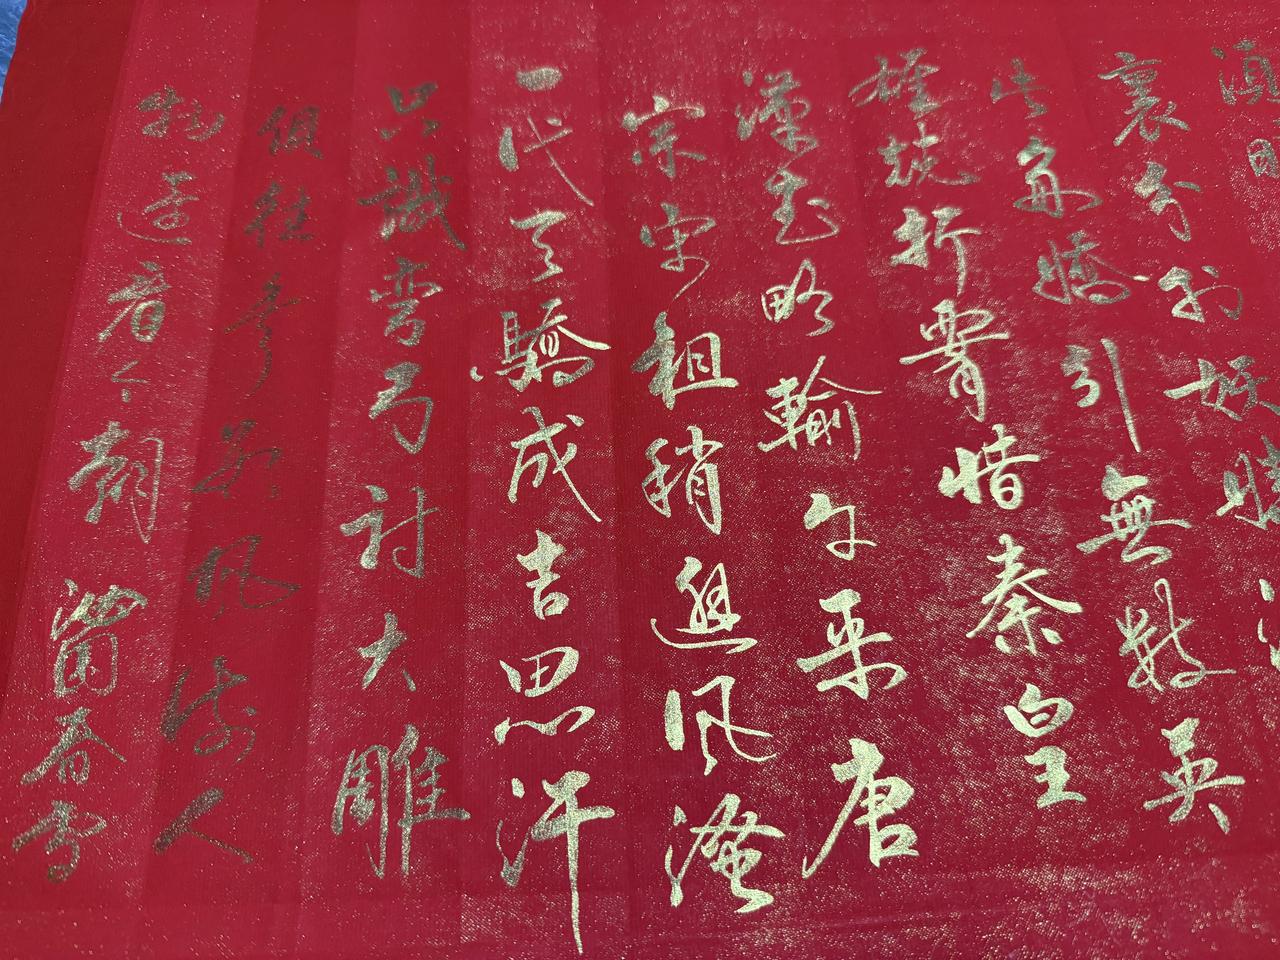 裹分外妖嬈
此多嬌引無數英
雄競折腰惜秦皇
漢武略輸文采唐
宗宋祖稍遜風騷
一代天驕成吉思汗
只識彎弓射大雕
俱往矣數風流人
物還看今朝 沁園春雪